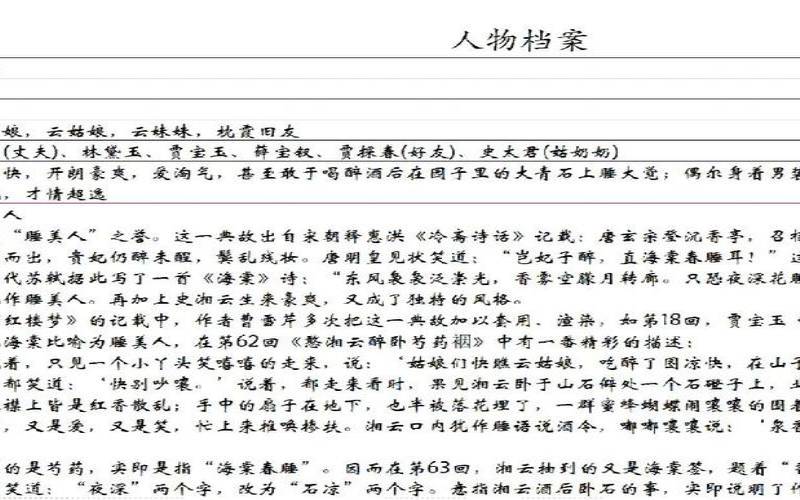 人物档案
娘，云姑娘，云妹妹，枕霞旧友
(丈夫)、林黛玉、贾宝玉、薛宝钗、贾探春(好友)、史太君(姑奶奶)
快，开朗豪爽，爱淘气，甚至敢于喝醉酒后在园子里的大青石上睡大觉；偶尔身着男装
，才情超逸
人
“睡美人”之誉。这一典故出自宋朝释惠洪《冷斋诗话》记载：唐玄宗登沉香亭，召杨
而出，贵妃仍醉未醒，鬓乱残妆。唐明皇见状笑道：“岂妃子醉，直海棠春睡耳！”这
代苏轼据此写了一首《海棠》诗：“东风袅袅泛崇光，香雾空朦月转廊。只恐夜深花睡
作睡美人。再加上史湘云生来豪爽，又成了独特的风格。
红楼梦》的记载中，作者曹雪芹多次把这一典故加以套用、渲染，如第18回，贾宝玉
海棠比喻为睡美人，在第62回《憨湘云醉卧芍药裀》中有一番精彩的描述：
着，只见一个小丫头笑嘻嘻的走来，说：‘姑娘们快瞧云姑娘，吃醉了图凉快，在山子
都笑道：‘快别吵嚷。’说着，都走来看时，果见湘云卧于山石僻处一个石磴子上，业
襟上皆是红香散乱；手中的扇子在地下，也半被落花埋了，一群蜜蜂蝴蝶闹嚷嚷的围着
，又是爱，又是笑，忙上来推唤搀扶。湘云口内犹作睡语说酒令，嘟嘟嚷嚷说：‘泉香
的是芍药，实即是指“海棠春睡”。因而在第63回，湘云抽到的又是海棠签，题着“香
笑道：“夜深”两个字，改为“石凉”两个字。意指湘云酒后卧石的事，实即说明了作